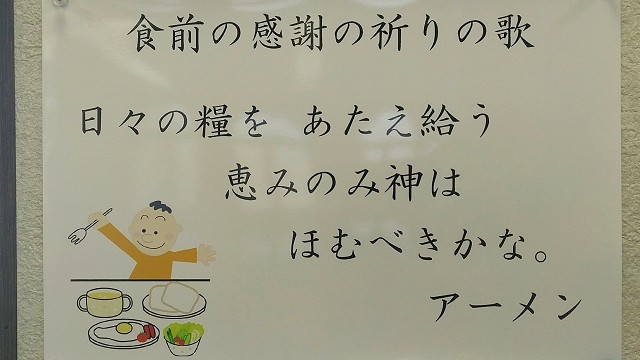 食前の感謝の祈りの歌
日々の糧を あたえ給う
恵みのみ神は
ほむべきかな。
アーメン